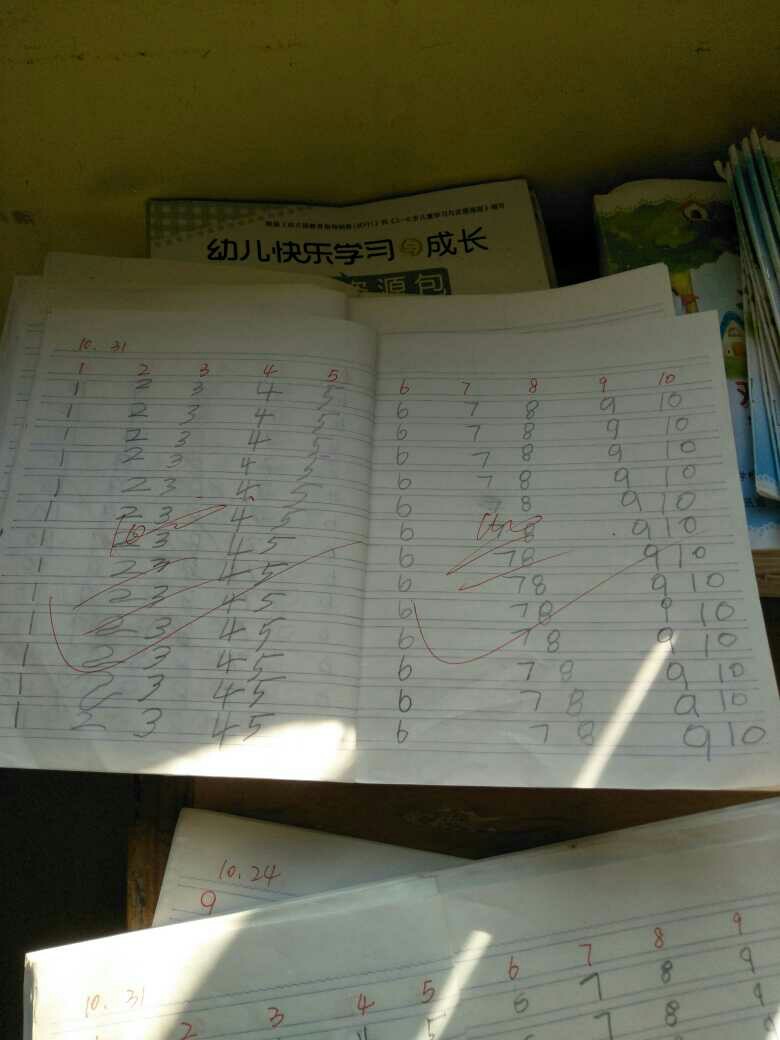 幼儿快乐学习与成长
资源包
10.31
1 2 3 4 5 6 7 8 9 10
1 2 3 4 5 6 7 8 9 10
1 2 3 4 5 6 7 8 9 10
1 2 3 4 5 6 7 8 9 10
1 2 3 4 5 6 7 8 9 10
1 2 3 4 5 6 7 8 9 10
1 2 3 4 5 6 7 8 9 10
1 2 3 4 5 6 7 8 9 10
1 2 3 4 5 6 7 8 9 10
1 2 3 4 5 6 7 8 9 10
1 2 3 4 5 6 7 8 9 10
1 2 3 4 5 6 7 8 9 10
1 2 3 4 5 6 7 8 9 10
1 2 3 4 5 6 7 8 9 10
10.24
9
10.31
2 3 4 5 6 7 8 9
6 7 8 9
5 6 7 8 9